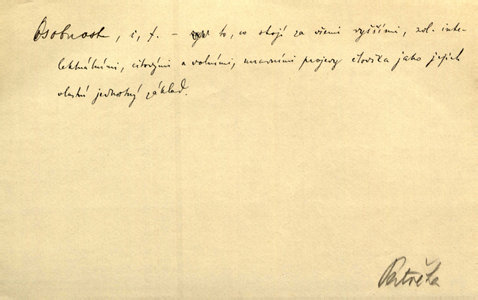 Osobnost, i, f. – to, co stojí za všemi vyššími, zvl. inte-
lektuálními, citovými a volními, mravními projevy člověka jako jejich
vlastní jednotný základ.
Patočka